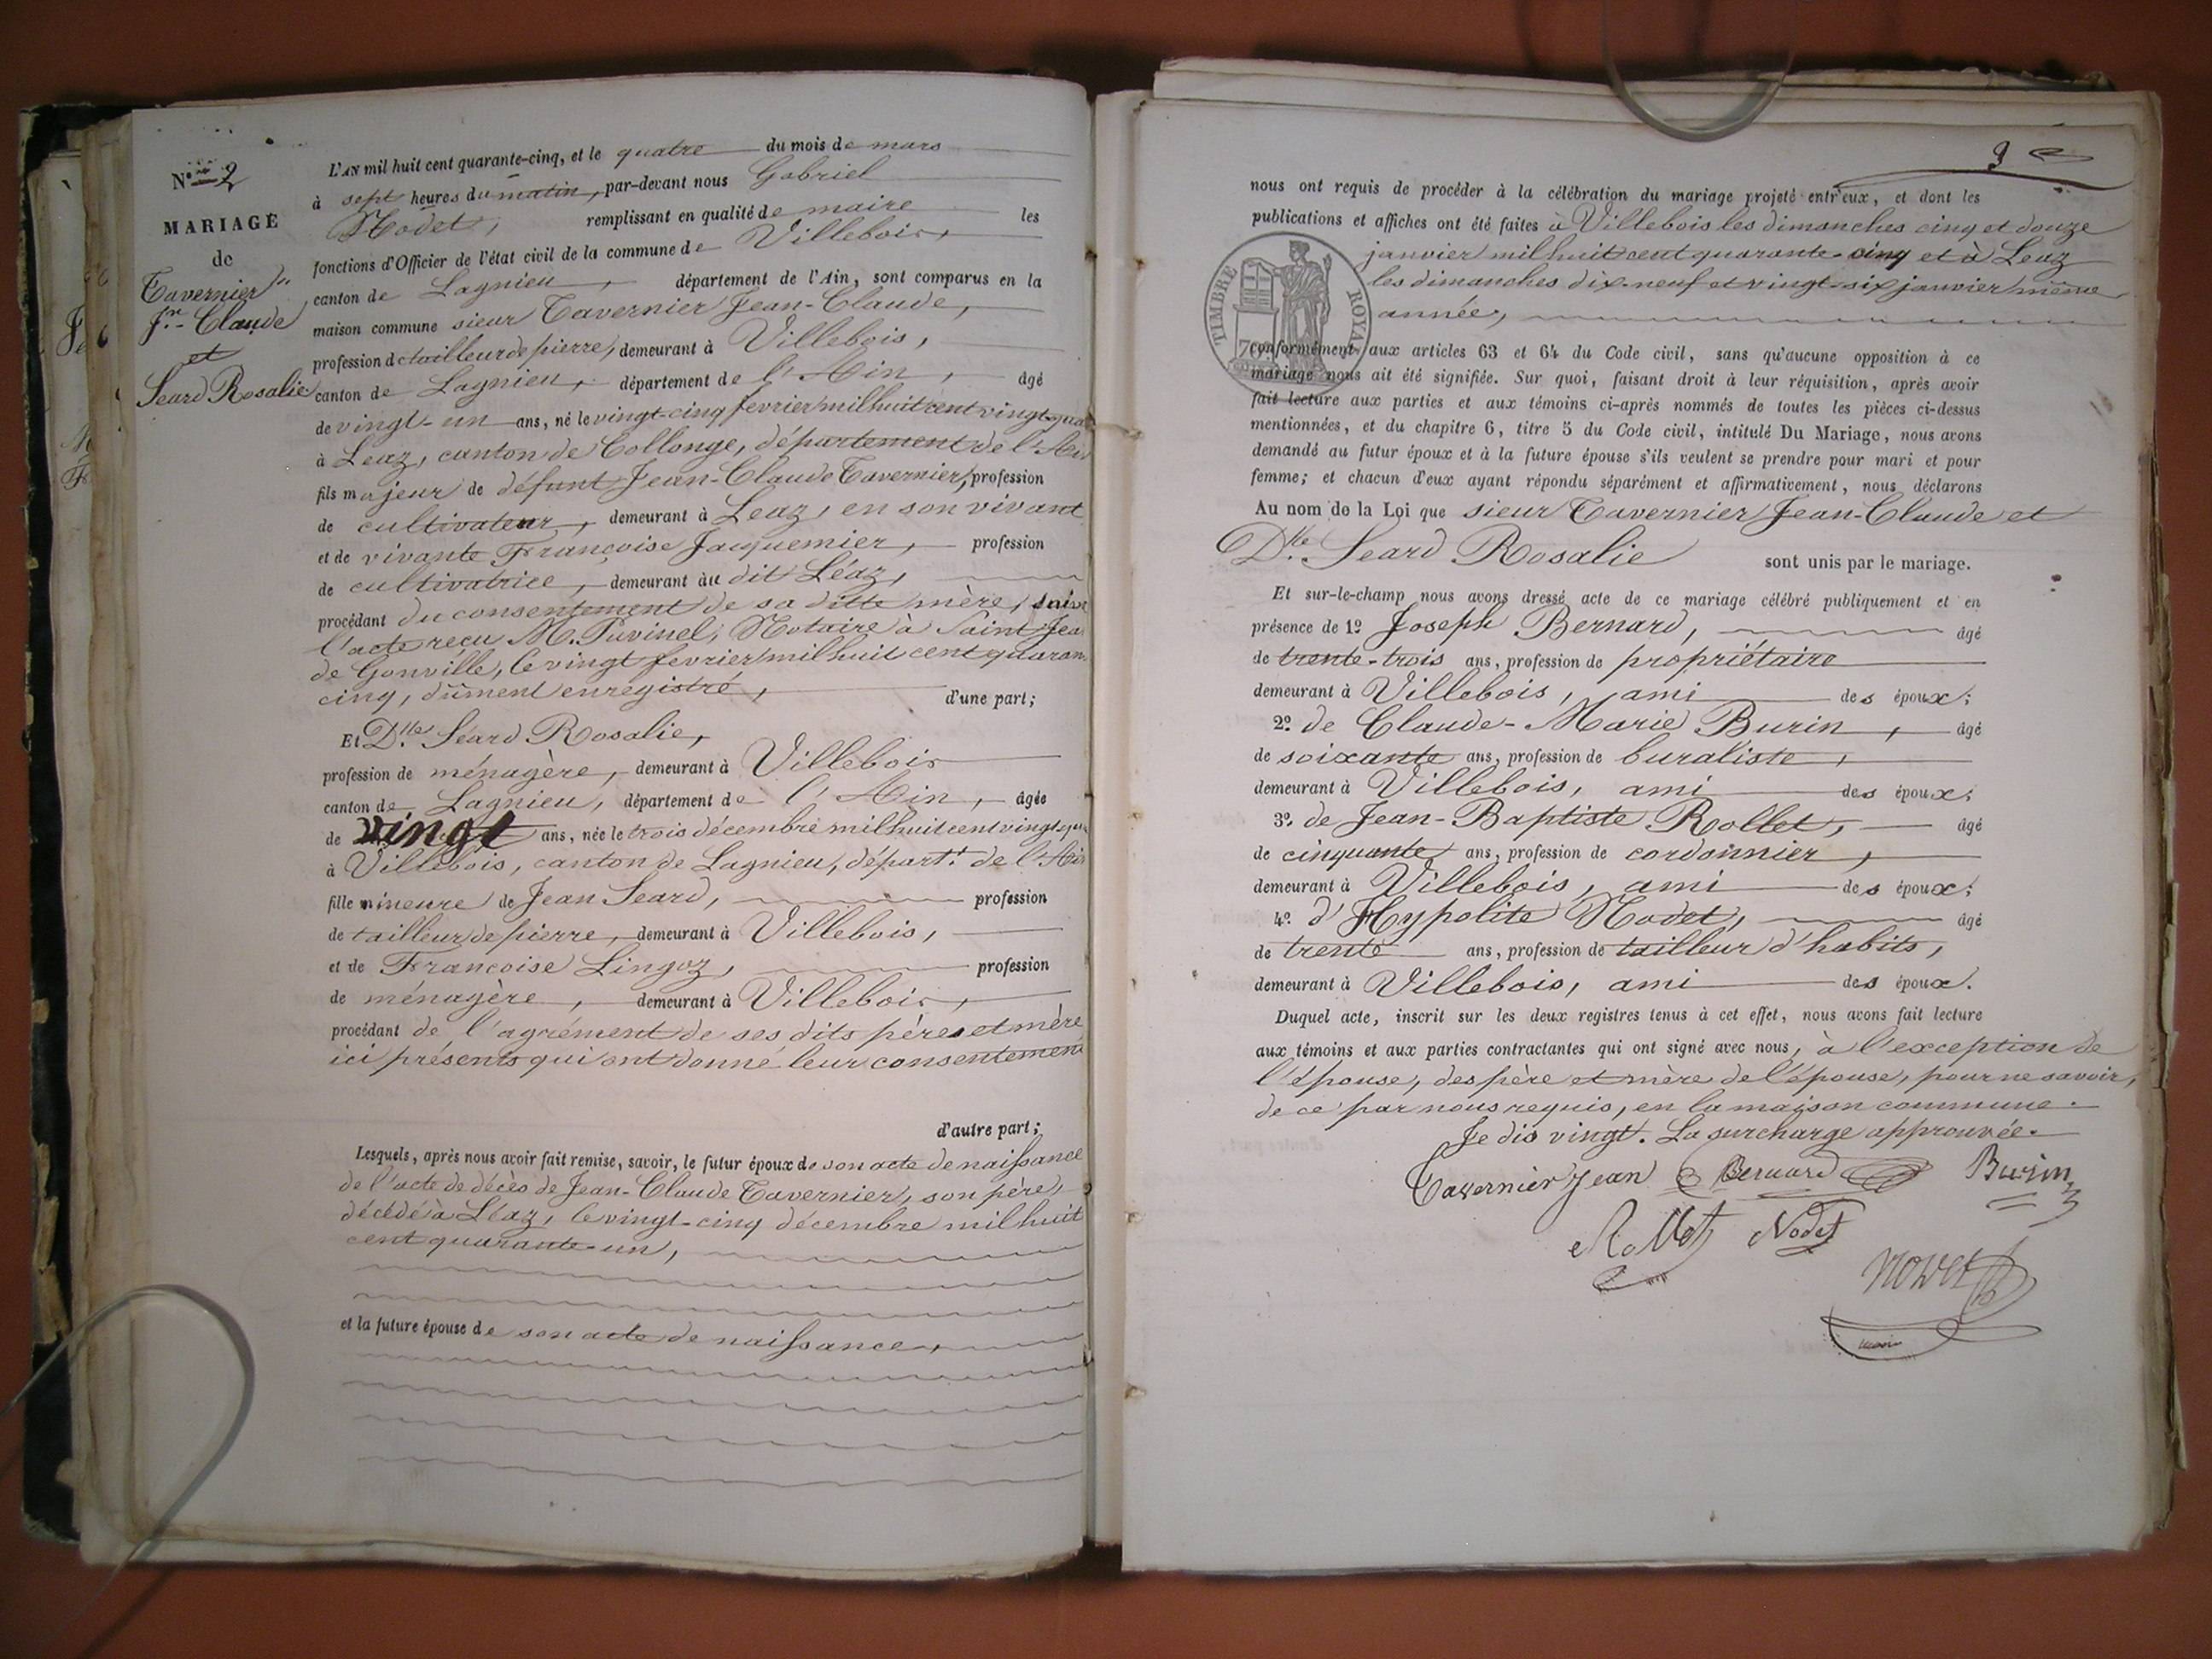 N° 2
MARIAGE
de
Tavernier
Jn- Claude
et
Seard Rosalie
L'AN mil huit cent quarante-cinq, et le quatre du mois de mars
à sept heures du matin, par-devant nous Gabriel
Nodet, remplissant en qualité de maire les
fonctions d'Officier de l'état civil de la commune de Villebois,
canton de Lagnieu, département de l'Ain, sont comparus en la
maison commune sieur Tavernier Jean-Claude,
profession de tailleur de pierre, demeurant à Villebois,
canton de Lagnieu, département de l'Ain, âgé
de vingt-un ans, né le vingt-cinq fevrier mil huit cent vingt-qua
à Leaz, canton de Collonge, département de l'Ain
fils majeur de défunt Jean-Claude Tavernier, profession
de cultivateur, demeurant à Leaz, en son vivant
et de vivante Françoise Jacquemier, profession
de cultivatrice, demeurant au dit Léaz,
procédant du consentement de sa ditte mère, suiv
l'acte reçu M. Puvinel, Notaire à Saint Jea
de Gonville, le vingt fevrier mil huit cent quaran
cinq, dûment enregistré, d'une part;
Et Dlle Séard Rosalie,
profession de ménagère, demeurant à Villebois
canton de Lagnieu, département de l'Ain, âgée
de vingt ans, née le trois décembre mil huit cent vingt qua
à Villebois, canton de Lagnieu, départt de l'Ain
fille mineure de Jean Seard, profession
de tailleur de pierre, demeurant à Villebois,
et de Françoise Lingoz, profession
de ménagère, demeurant à Villebois,
procédant de l'agrément de ses dits pères et mère
ici présents qui ont donné leur consentement
d'autre part;
Lesquels, après nous avoir fait remise, savoir, le futur époux de son acte de naissance
de l'acte de décès de Jean-Claude Tavernier, son père,
décédé à Léaz, le vingt-cinq décembre mil huit
cent quarante-un,
et la future épouse de son acte de naissance,
3
nous ont requis de procéder à la célébration du mariage projeté entr'eux, et dont les
publications et affiches ont été faites à Villebois les dimanches cinq et douze
janvier mil huit cent quarante-cinq et à Leaz
les dimanches dix-neuf et vingt-six janvier même
année,
TIMBRE ROYAL
conformément aux articles 63 et 64 du Code civil, sans qu'aucune opposition à ce
mariage nous ait été signifiée. Sur quoi, faisant droit à leur réquisition, après avoir
fait lecture aux parties et aux témoins ci-après nommés de toutes les pièces ci-dessus
mentionnées, et du chapitre 6, titre 5 du Code civil, intitulé Du Mariage, nous avons
demandé au futur époux et à la future épouse s'ils veulent se prendre pour mari et pour
femme; et chacun d'eux ayant répondu séparément et affirmativement, nous déclarons
Au nom de la Loi que sieur Tavernier Jean-Claude et
Dlle Seard Rosalie sont unis par le mariage.
Et sur-le-champ nous avons dressé acte de ce mariage célébré publiquement et en
présence de 1° Joseph Bernard, âgé
de trente-trois ans, profession de propriétaire
demeurant à Villebois, ami des époux;
2° de Claude-Marie Burin, âgé
de soixante ans, profession de buraliste,
demeurant à Villebois, ami des époux;
3° de Jean-Baptiste Rollet, âgé
de cinquante ans, profession de cordonnier,
demeurant à Villebois, ami des époux;
4° d'Hypolite Nodet, âgé
de trente ans, profession de tailleur d'habits,
demeurant à Villebois, ami des époux.
Duquel acte, inscrit sur les deux registres tenus à cet effet, nous avons fait lecture
aux témoins et aux parties contractantes qui ont signé avec nous, à l'exception de
l'épouse, des père et mère de l'épouse, pour ne savoir,
de ce par nous requis, en la maison commune.
Je dis vingt. La surcharge approuvée.
Tavernier Jean Bernard Burin
Rollet Nodet
Nodet
maire